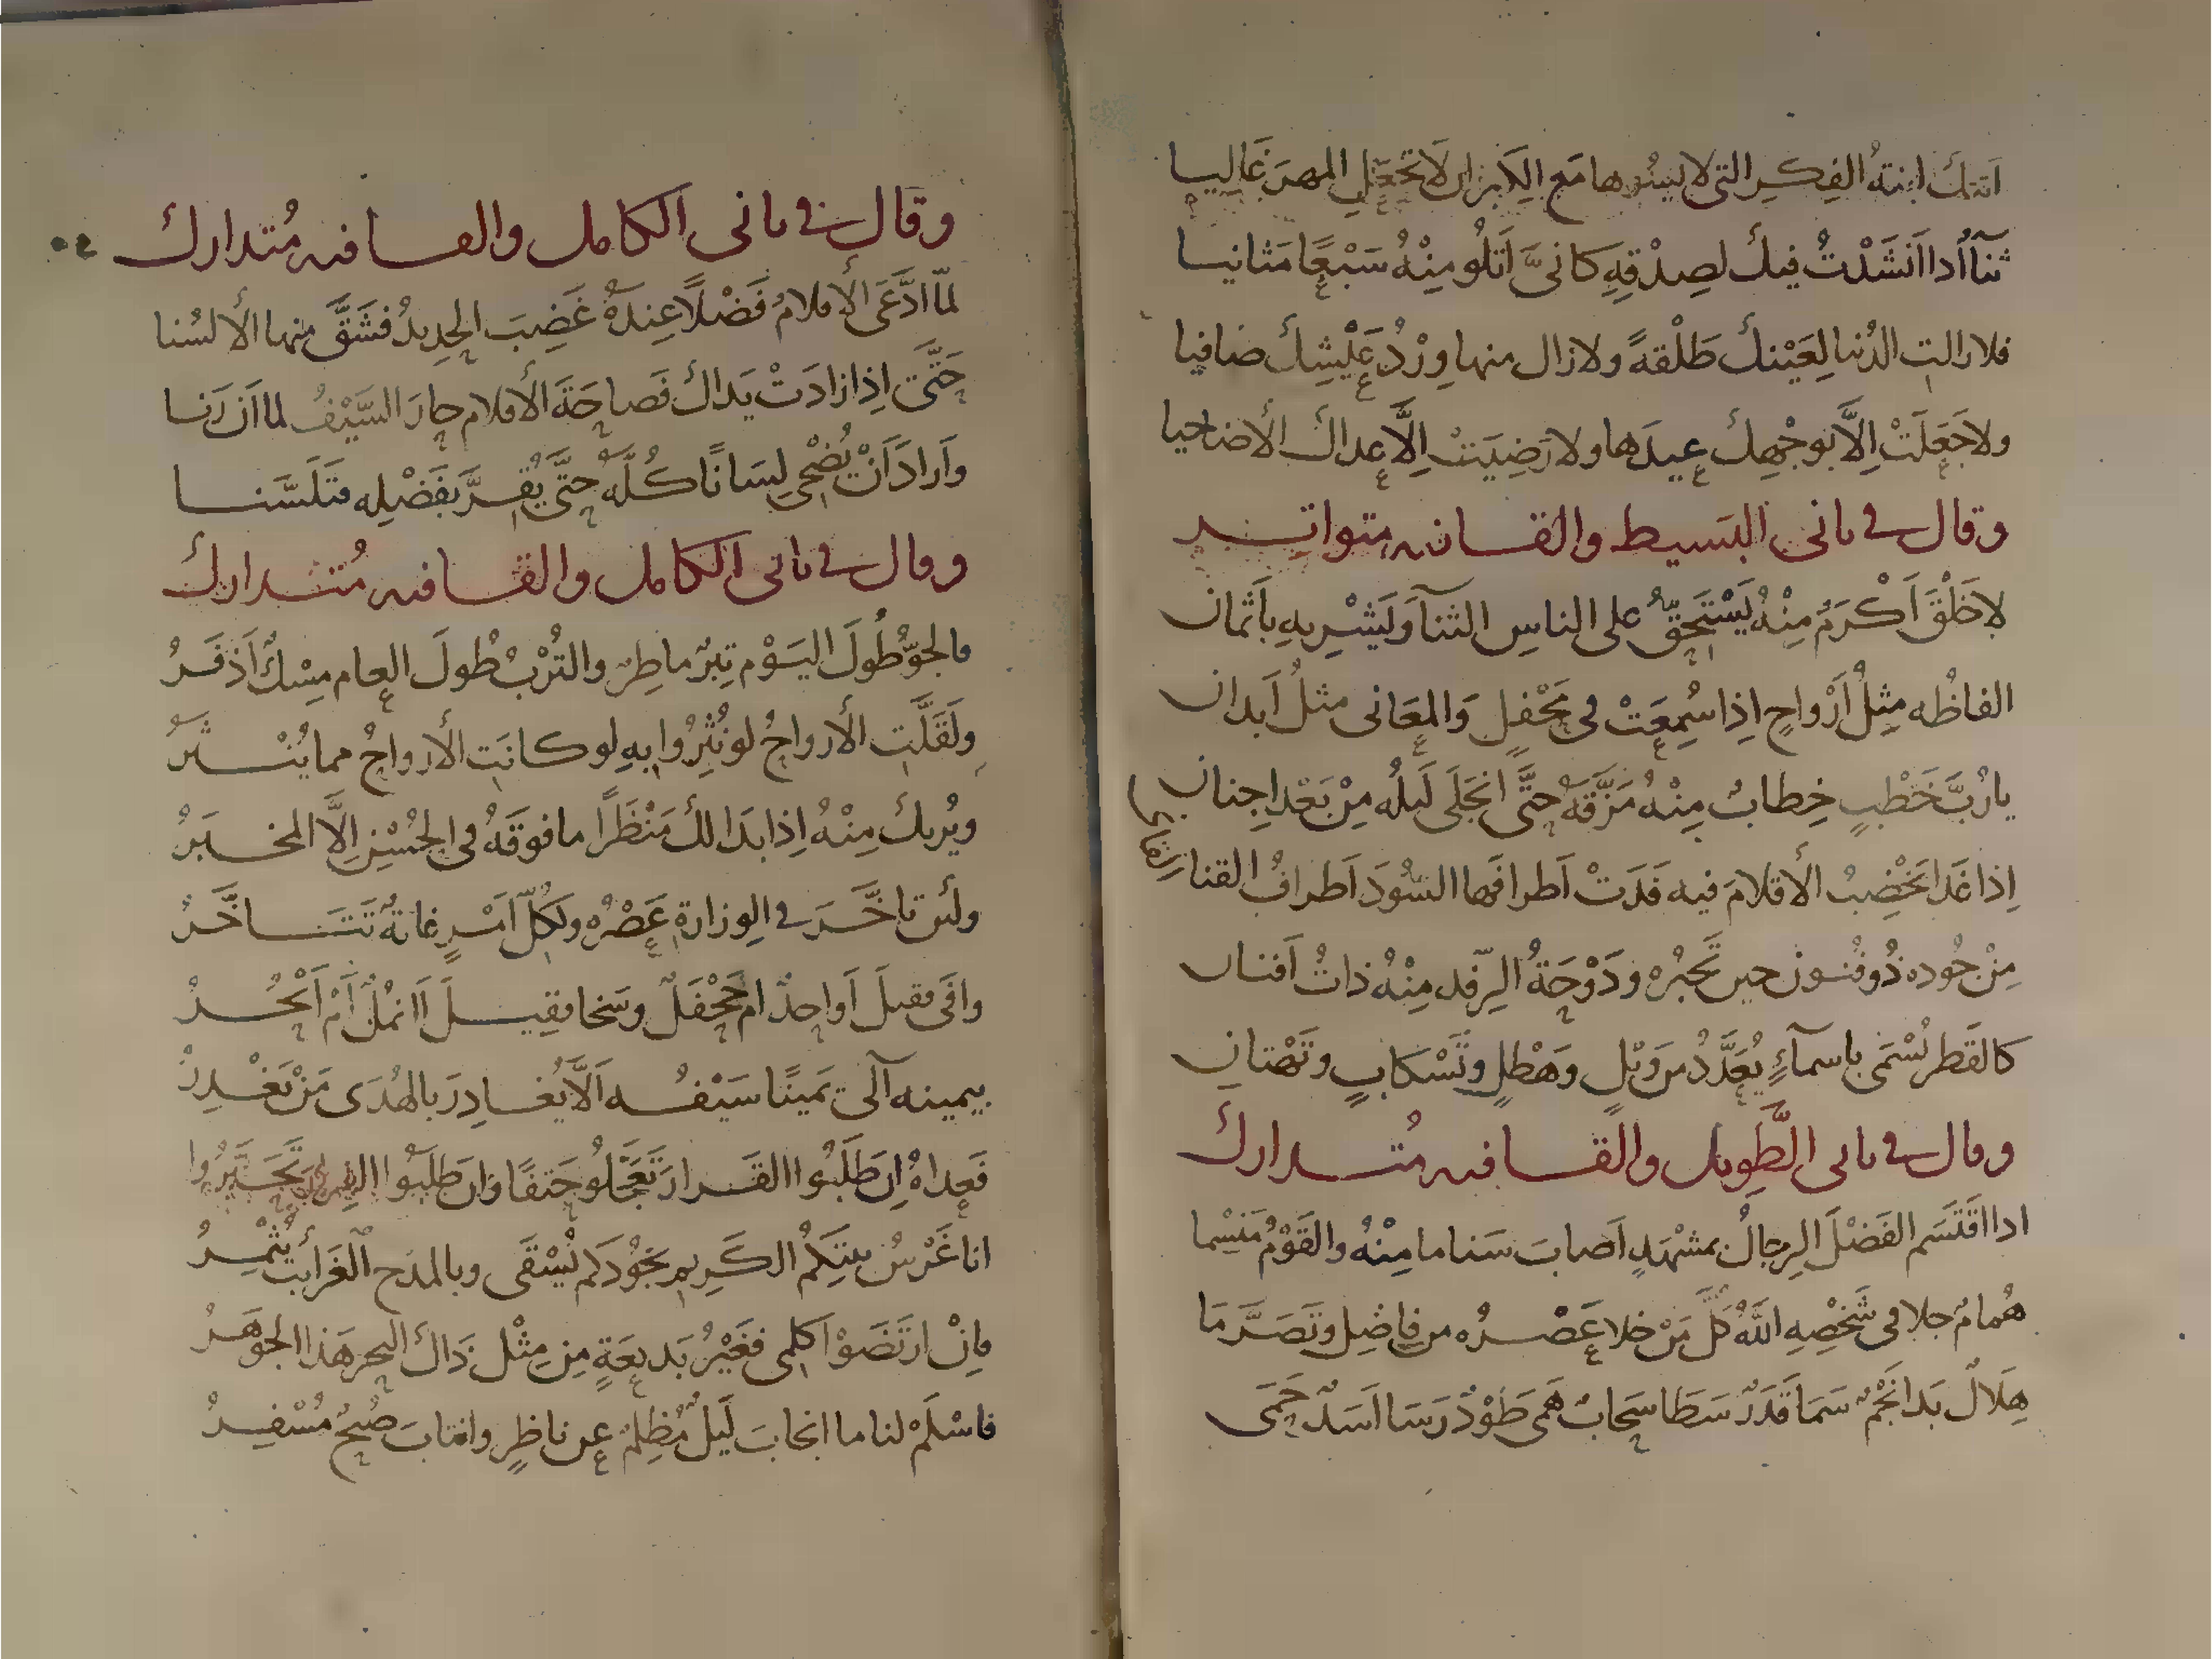 اتتك ابنة الفكر التي لا يسرها مع الكبر ان لا تجعل المهر غاليا
ثناآ اذا انشدت فيك لصدقه كانيَّ اتلو منه سَبْعًا مَثانيا
فلا زالت الدنيا لعَيْنك طَلْقةً ولا زال منها وِرْدُ عَيْشِكَ ضافيا
ولا جَعَلَتْ اِلَّا بوجْهِك عيدَها ولا رَضِيَتْ اِلَّا عِداك الأضاحيا
وقال في ثاني البَسيط والقافيه متواتر
لا خَلْقَ اَكْرَمُ مِنْهُ يَسْتَحِقُّ على الناسِ الثنآ وَيَشْرِيهِ بِاَثمان
الفاظُه مِثلُ اَرْواحٍ اِذا سُمِعَتْ في مَحْفلٍ وَالمعَاني مثلُ اَبدان
يا رُبَّ خَطْبٍ خِطابٌ مِنْهُ مَزَّقَهُ حتَّى انجَلَى لَيلُه مِنْ بَعْد اِجنان
اِذا غَدا يَخْضِبُ الأقلامَ فيه فَدَتْ اَطرافَها السُّودَ اَطرافُ القنا
مِنْ جُوده ذُو فُنونٍ حين تَخبُرُه ودَوْحَةُ الرِّفد مِنْهُ ذاتُ اَفنان
كالقَطر يُسْمَى باسمآءٍ يُعَدَّدُ من وَبْلٍ وهَطْلٍ وتَسْكابٍ وتَهْتانِ
وقال في ثاني الطَّوِيل والقافيه مُتدارك
اذا اقتَسَم الفَضْلَ الرِجالُ بمشْهَدٍ اَصابَ سَناما مِنْهُ والقَوْمُ مَنْسِما
هُمامٌ جلا في شَخْصِهِ اللهُ كُلَّ مَنْ خلا عَصْرُه من فاضِلٍ وتَصَرَّمَا
هِلالٌ بَدا نَجْمٌ سَمَا قَدَرٌ سَطا سَحابٌ هَمى طَوْدٌ رَسَا اَسَدٌ حَمَى
وقال في ثاني الكامل والقافيه مُتدارك
لمّا ادَّعَى الأقلامُ فَضْلًا عِندَهُ غَضِبَ الحديدُ فشَقَّ منها الألسُنا
حَتَّى اِذا زادَتْ يَداك فَصاحَةَ الأقلام حارَ السَّيْفُ لما اَن رَنا
وَاَرادَ اَنْ يُضْحِي لِسَانًا كُلُّه حتَّى يُقِرَّ بفَضْلِه فتَلَسَّنا
وقال في ثاني الكامل والقافيه مُتدارك
فالجوُّ طُولَ اليَوْم تِبرٌ ماطِرٌ والتُرْبُ طُولَ العام مِسْكٌ اَذفَرُ
ولَقَلَّت الأرواحُ لو نُثِرُوا بِهِ لو كانَت الأرواحُ مما يُنْثَرُ
ويُريك مِنْهُ اِذا بَدا لك مَنْظَرًا ما فوقَهُ في الحُسْنِ اِلَّا المخبَرُ
ولئن تاخَّرَ في الوِزارةِ عَصْرُه ولكلِّ اَمْرٍ غايةٌ تَتَاخَّرُ
وافَى فقيلَ اَواحِدٌ ام جَحْفَلٌ وسَخا فقِيلَ اَاَنمُلٌ اَمْ اَبْحُرُ
بيمينه آلَى يَمينًا سَيْفُه اَلَّا يُغادِرَ بالهُدَى مَنْ يَغْدِرُ
فَعِداهُ اِن طَلَبُوا القَرار تَعَجَّلُو حَتفًا وَان طلَبُوا الفرار تَحَيَّرُوا
انا غَرْسُ بيتِكمُ الكَرِيمِ بجُودِكم يُسْقَى وبالمدْحِ الغَرائبِ يُثمِرُ
فاِنْ ارتَضَوْا كلِمي فغَيْرُ بَديعَةٍ مِن مِثْل ذَاك البحر هَذا الجوْهَرُ
فاسْلَمْ لنا ما انجابَ لَيلٌ مُظلِمٌ عن ناظِرٍ وانتابَ صُبْحٌ مُسْفِرُ